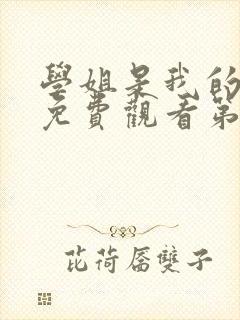 學姐是我的
免費觀看第
芘荷唇雙子